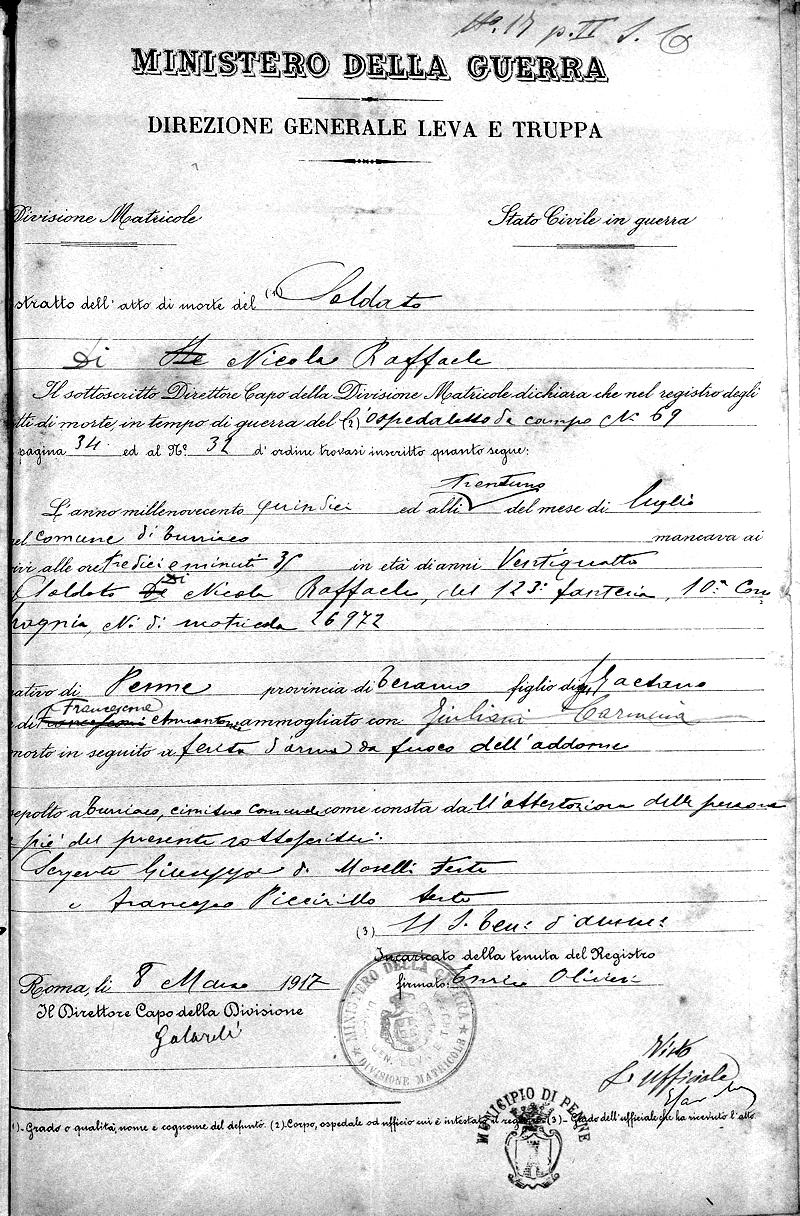 No. 17 p. II S. C
MINISTERO DELLA GUERRA
DIREZIONE GENERALE LEVA E TRUPPA
Divisione Matricole
Stato Civile in guerra
stratto dell'atto di morte del (1) Soldato
Di De Nicola Raffaele
Il sottoscritto Direttore Capo della Divisione Matricole dichiara che nel registro degli
tti di morte, in tempo di guerra del (2) ospedaletto da campo N. 69
pagina 34 ed al N.º 32 d'ordine trovasi inscritto quanto segue:
trentuno
L'anno millenovecento quindici ed alli del mese di luglio
nel comune di Turriaco mancava ai
ivi alle ore tredici e minuti 35 in età di anni Ventiquattro
Di
l soldato De Nicola Raffaele, del 123º fanteria, 10ª Com
pagnia, N. di matricola 26972
nativo di Penne provincia di Teramo figlio di Gaetano
Francesca
e di ammogliato con Giuliani Carmina
morto in seguito a ferita d'arma da fuoco dell'addome
sepolto a Turriaco, cimitero Comunale come consta da ll'attestazione delle persone
a pié del presente sottoscritte.
Sergente Giuseppe di Moselli Teste
e Francesco Piccirillo teste
(3) Il S. Ten. d'amm.
Incaricato della tenuta del Registro
Roma, li 8 Marzo 1917 firmato: Enrico Olivieri
Il Direttore Capo della Divisione
MINISTERO DELLA GUERRA
DIVISIONE MATRICOLE
Visto
L'ufficiale
(1)-Grado o qualità, nome e cognome del defunto. (2)-Corpo, ospedale od ufficio cui è intestato il registro. (3)-Grado dell'ufficiale che ha ricevuto l'atto
MUNICIPIO DI PENNE